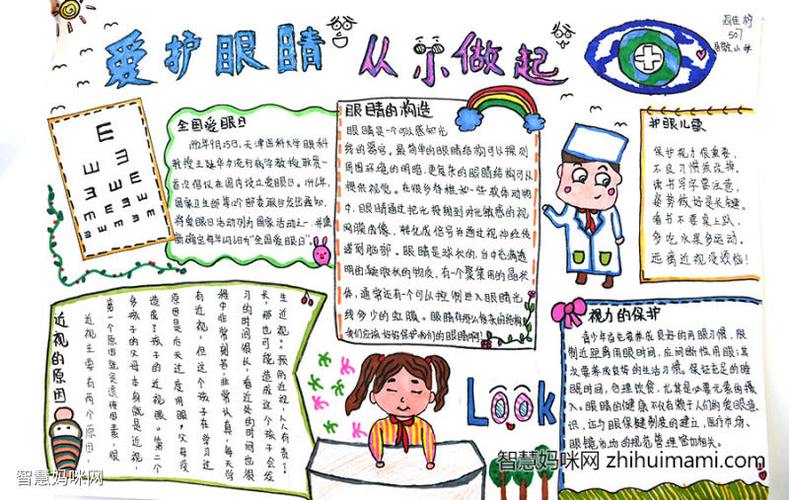 爱护眼睛从小做起
507
全国爱眼日
1992年9月25日，天津医科大学眼科
教授王延华与流行病学教授耿贯一
首次倡议在国内设立爱眼日。1996年，
国家卫生部等12个部委联合发出通知
将爱眼日活动列为国家活动之一，并重
新确定每年6月6日为“全国爱眼日”。
眼睛的构造
眼睛是一个可以感知光
线的器官。最简单的眼睛结构可以探测
周围环境的明暗，更复杂的眼睛结构可以
提供视觉。在很多脊椎和一些软体动物
中，眼睛通过把光投射到对光敏感的视
网膜成像，转化成信号并通过视神经传
递到脑部。眼睛是球状的，当中充满透
明的凝胶状的物质，有一个聚焦用的晶状
体，通常还有一个可以控制进入眼睛光
线多少的虹膜。
我们应该好好保护我们的眼睛啊！
护眼儿歌
保护视力很重要，
不良习惯放改掉。
读书写字要注意，
姿势做好是关键。
看书不要桌上趴，
多吃水果多运动。
远离近视没烦恼！
近视的原因
近视主要有两个原因，
第一个原因就是遗传因素，眼
多孩子的父母本身就是近视，
造成了孩子的近视眼。第二个
原因是后天过度用眼，父母没
有近视，但这个孩子在学习过
程中非常刻苦、非常认真，每天学
习的时间很长，看近处的时间也很
长，那也可能造成这个孩子会发
生近视。
Look
视力的保护
青少年首先要养成良好的用眼习惯，限
制近距离用眼时间，应间断性用眼；其
次要养成良好的生活习惯。保证充足的睡
眠时间，合理饮食，尤其是必要元素的摄
入。眼睛的健康不仅有赖于人们的爱眼意
识，还与眼保健制度的建立，医疗市场、
眼镜市场的规范管理密切相关。
智慧妈咪网
智慧妈咪网 zhihuimami.com